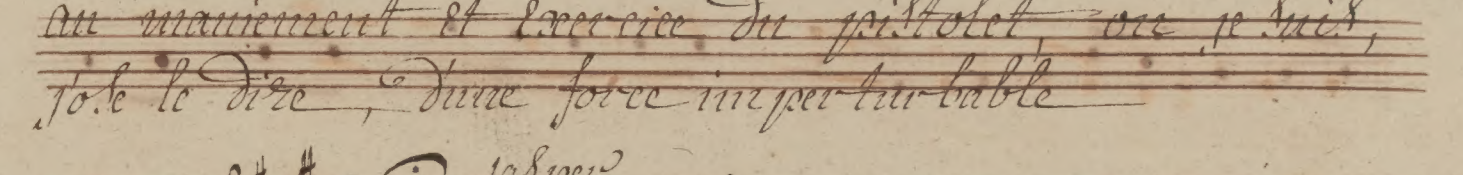 au maniement et Exercice du pistolet, ou je suis,
j'ose le dire, d'une force imperturbable